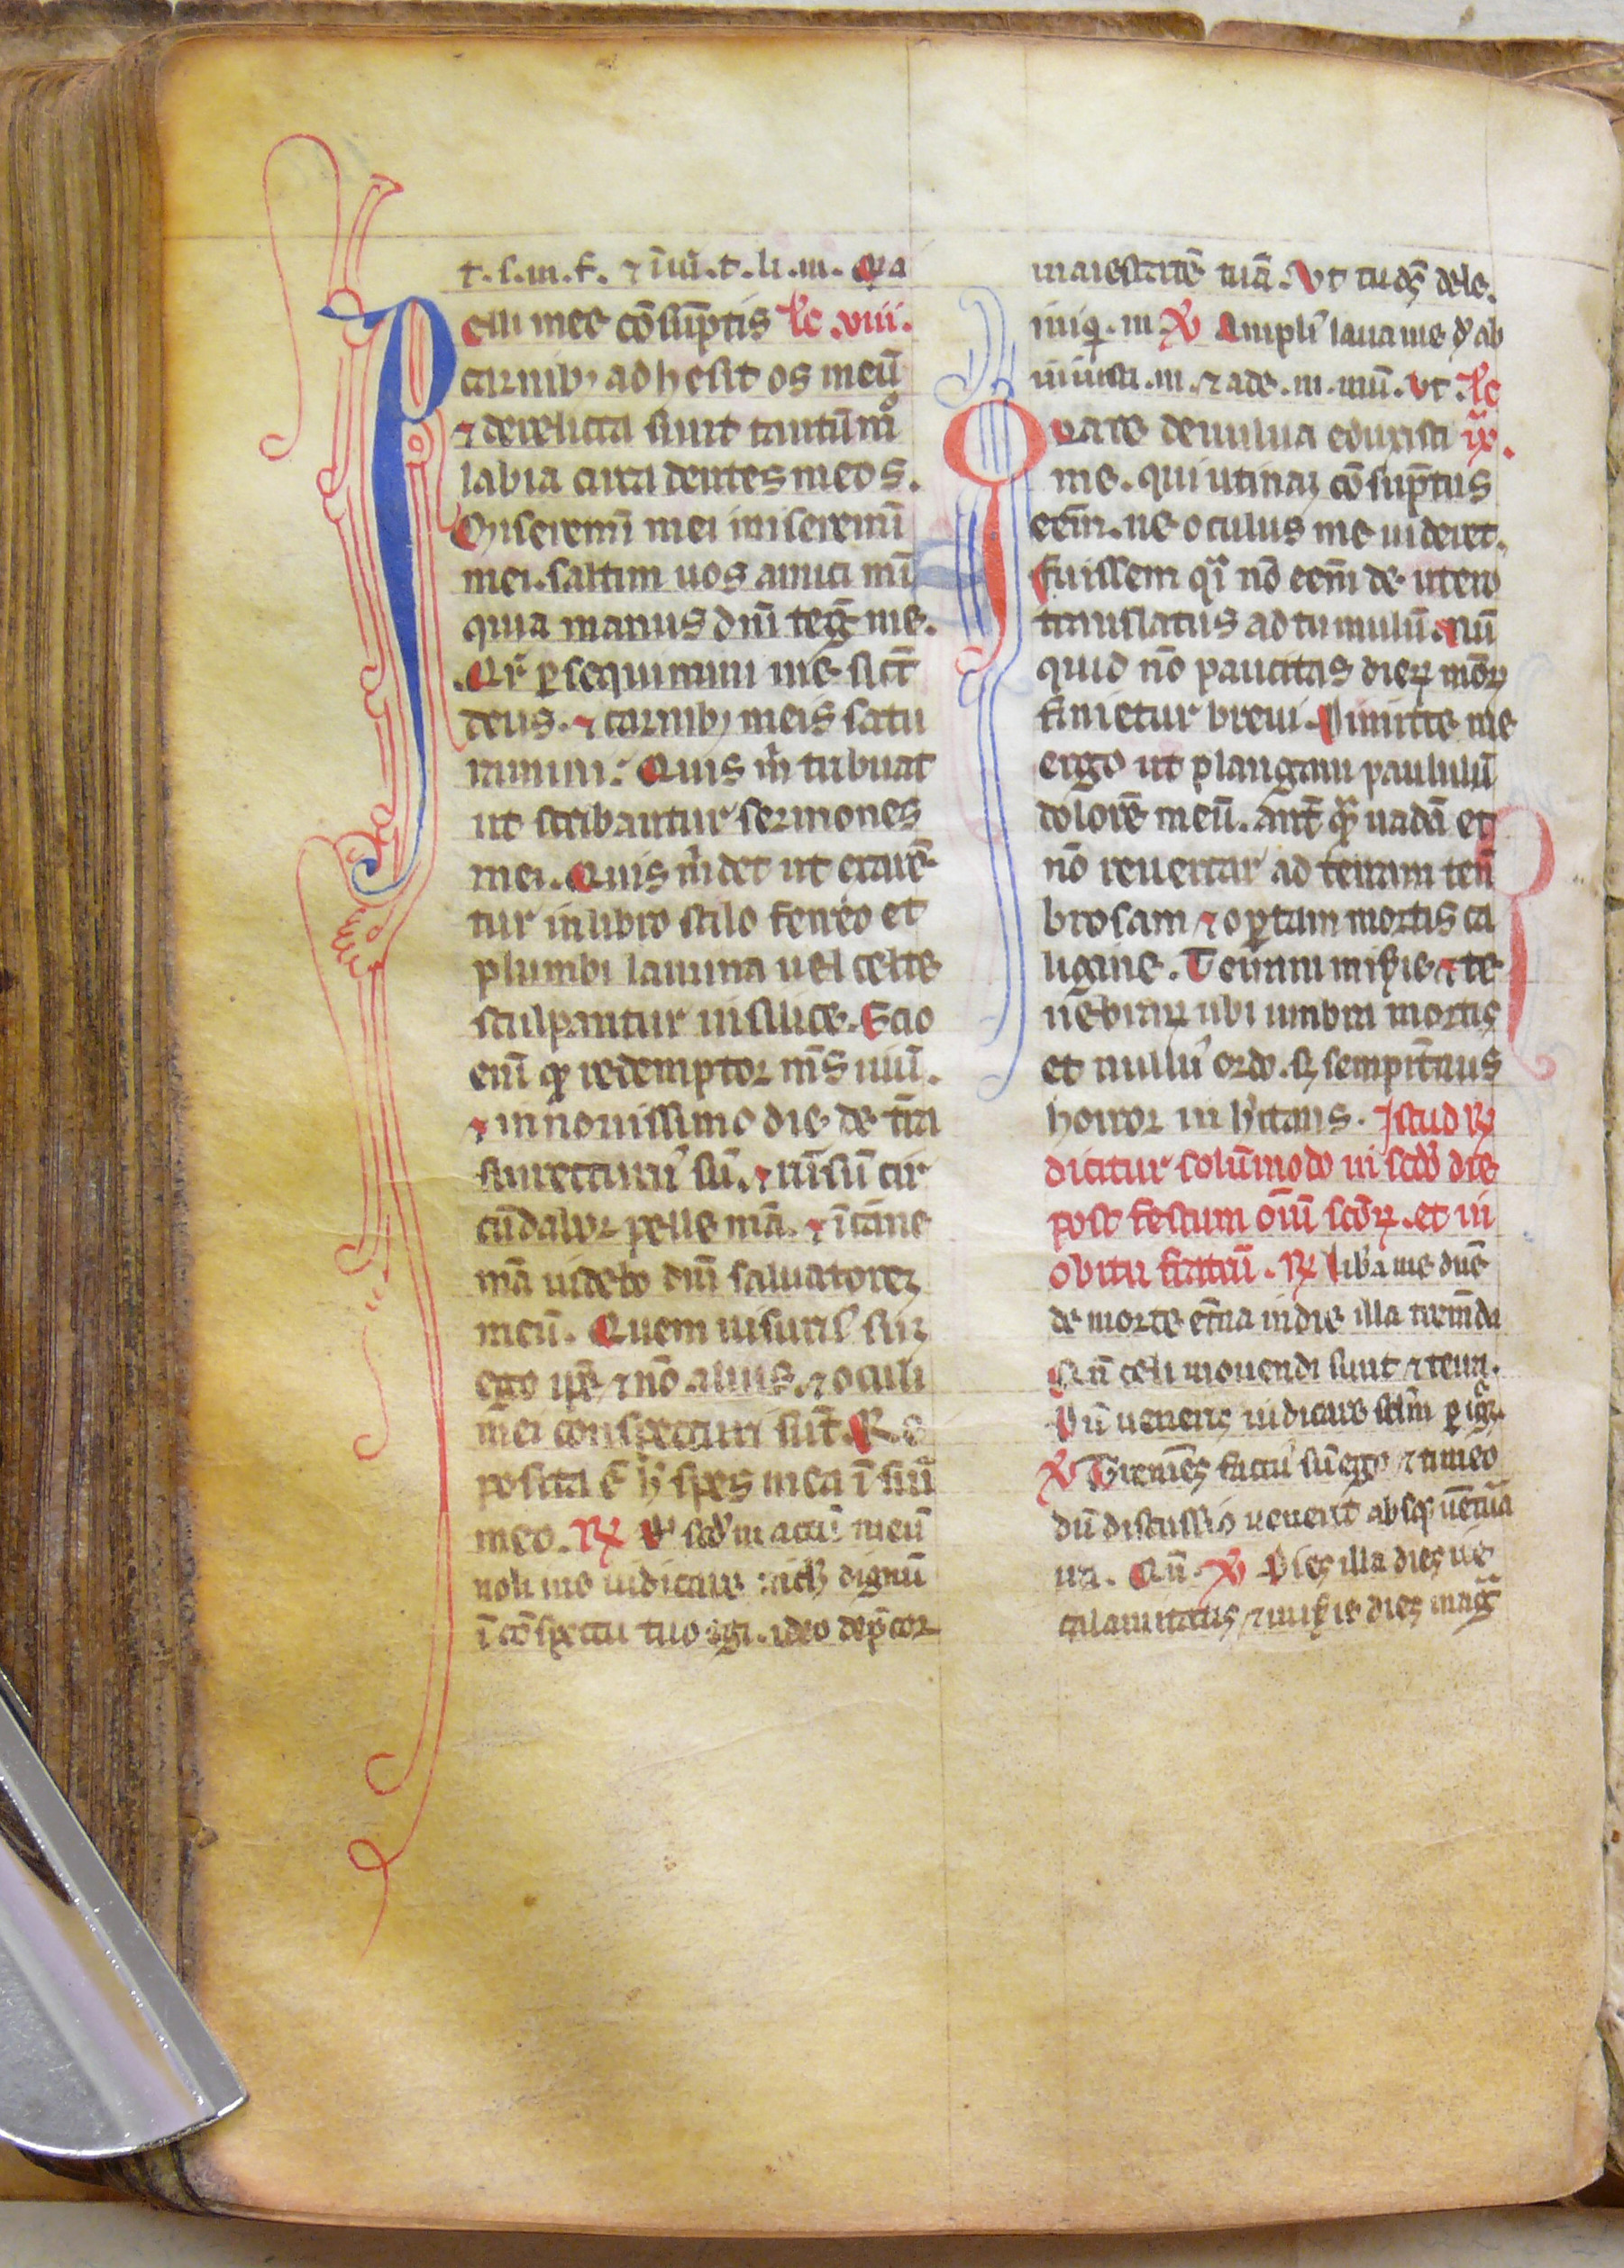 t. s. m. f. ⁊ ī iu̅. t. li. m. Qia
Pelli mee cōsūptis lc̄ .viii.
carnibꝫ adhesit os meū
⁊ derelicta sunt tantūmͦ
labia circa dentes meos.
Miseremī mei miseremī
mei. saltim uos amici mī
quia manus dn̄i teg̅ me.
Qr̄ ꝑsequimini me sict̄
deus. ⁊ carnibꝫ meis satu
ramini. Quis m̄ tribuat
ut scribantur sermones
mei. Quis m̄ det ut exarē
tur in libro stilo ferreo et
plumbi lamina uel celte
sculpantur in silice. Scio
enī ꝙ redemptor m̄s uiu̅.
⁊ in nouissimo die de t̄ra
surrecturꝰ sū. ⁊ rūsū cir
cūdabor pelle mā. ⁊ ī carne
mā uidebo dn̄i saluatorē
meū. Quem uisurꝰ suꝫ
ego ipē ⁊ nō alius. ⁊ oculi
mei conspecturi sūt. Re
posita ē h̄ spes mea ī sinū
meo. ℞ Dn̄e scdm̄ actū meū
noli me iudicare nich̄ dignū
ī cōspectu tuo egi. ideo dep̄cor
maiestatē tuā. Vt tu dꝫ dele.
iniq̄. m ℣ Amplīꝰ laua me dn̄e ab
iniusti. m. ⁊ a de. m. mū. Vt lc̄
Quare de uulua eduxisti ix.
me. qui utinaꝫ cōsūptus
eēm. ne oculus me uideret.
fuissem qͣi nō eēm de utero
translatus ad tumulū. Nū
quid nō paucitas dierꝝ meoꝝ
finietur breui. Dimitte me
ergo ut plangam paululū
dolorē meū. ant̄ qͣꝫ uadā et
nō reuertar ad terram ten̄
brosam ⁊ oꝑtam mortis ca
ligine. Terram miẜie ⁊ te
nebrarꝝ ubi umbra mortis
et nullus ordo. sꝫ sempit̄nus
horror in h̄itans. Istud ℞
dicitur solūmodo in scdo̅ die
post festum oīu̅ scōrꝝ. et in
obitu frat̄rū. ℞ Liba me dn̄e
de morte et̄na in die illa trem̄da
Qn̄ celi mouendi sunt ⁊ terra.
Dū ueneris iudicare sclm̄ ꝑ igē.
℣ Tremēs factꝰ sū ego ⁊ timeo
dū discussio uenerit atqꝫ uentura
ira. Qn̄ ℣ Dies illa dies ire
calamitatis ⁊ miẜie dies mag̅